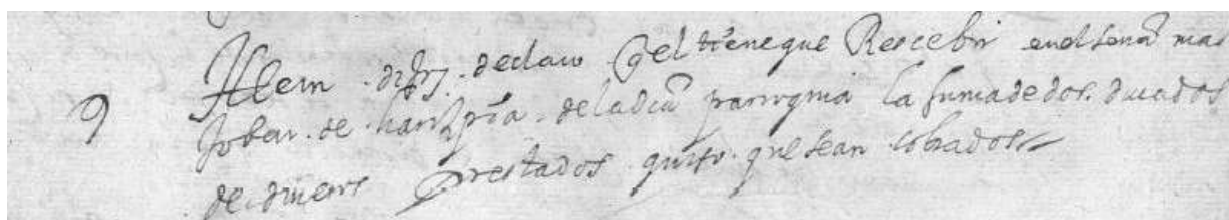 Item dixo y declaro q el tiene que Rescebir en el seńor mar
Joban de harizpea de la dicħa parrognia la suma de dos ducados
9
de dineros prestados quiso que sean cobrados